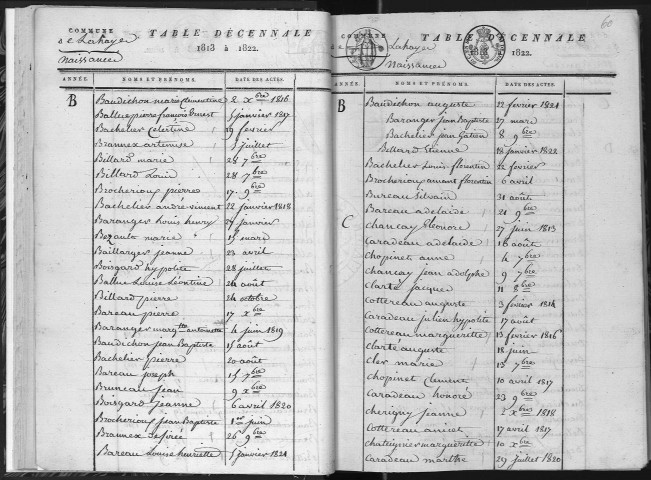 COMMUNE TABLE DÉCENNALE
de Lahaye 1813 à 1822.
Naissances
ANNÉE. NOMS ET PRÉNOMS. DATE DES ACTES.
B
Baudichon marie Clementine 2 xbre 1816
Ballue pierre françois Ernest 5 janvier 1817
Bachelier Celestine 19 fevrier
Brannex artemise 5 juillet
Billard marie 28 7bre
Billard Louise 28 7bre
Brocherioux pierre 17 9bre
Bachelier andré vincent 22 janvier 1818
Baranger Louis henry 27 janvier
Bezault marie 15 mars
Baillarger jeanne 23 avril
Boisgard hypolite 28 juillet
Ballue Louise Léontine 24 août
Billard pierre 24 octobre
Bareau pierre 17 xbre
Baranger margtte antoinette 4 juin 1819
Baudichon jean Baptiste 15 août
Bachelier pierre 20 août
Bareau joseph 15 7bre
Bruneau jean 9 xbre
Boisgard jeanne 6 avril 1820
Brocherioux jean Baptiste 1er juin
Brannex desirée 26 9bre
Bareau Louise henriette 5 janvier 1821
60
COMMUNE TABLE DÉCENNALE
Lahaye 1813 1822.
Naissances
ANNÉE. NOMS ET PRÉNOMS. DATE DES ACTES.
B
Baudichon auguste 22 fevrier 1821
Baranger jean Baptiste 27 mars
Bachelier jean Gatien 8 9bre
Billard Etienne 18 janvier 1822
Bachelier Louis florentin 22 fevrier
Brocherioux amant florentin 6 avril
Bureau Silvain 31 août
Bareau adelaide 21 9bre
C
Chancay Eleonore 27 juin 1813
Caradeau adelaide 16 août
Chopinet anne 4 7bre
Chancay jean adolphe 9 7bre
Clarté jacques 11 8bre
Cottereau auguste 3 fevrier 1814
Caradeau julien hypolité 17 août
Cottereau marguerite 13 fevrier 1816
Clarté auguste 18 juin
Cler marie 13 7bre
Chopinet Clement 10 avril 1817
Caradeau honoré 23 9bre
Cherigny jeanne 2 xbre 1818
Cottereau 17 avril 1817
Chatignier marguerite 10 xbre
Caradeau marthe 29 juillet 1820